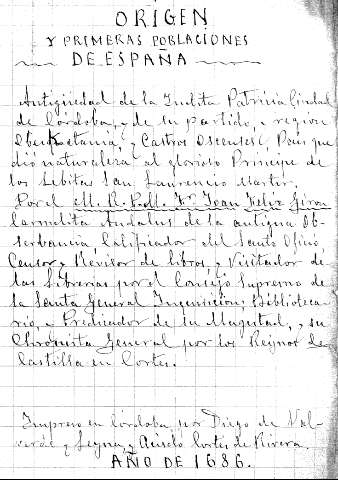 ORIGEN
Y PRIMERAS POBLACIONES
DE ESPAÑA
Antigüedad de la Inclita Patricia Ciudad
de Córdoba, y de su partido, y region
y Castros Oscenses, País que
dió naturaleza al glorioso Principe de
los Lebitas San Laurencio Martir.
Por el M. R. P. M. Fr. Juan Felix Giron
Carmelita Andaluz de la antigua Ob-
serbancia, Calificador del Santo Ofició,
Censor y Revisor de libros, y Visitador de
las Librerias por el Consejo Supremo de
la Santa General Inquisición; Biblioteca-
rio, y Predicador de su Magestad, y su
Chronista General por los Reynos de
Castilla en Cortes.
Impreso en Córdoba por Diego de Val-
verde y Leyva, y Acisclo Cortes de Rivera.
AÑO DE 1686.